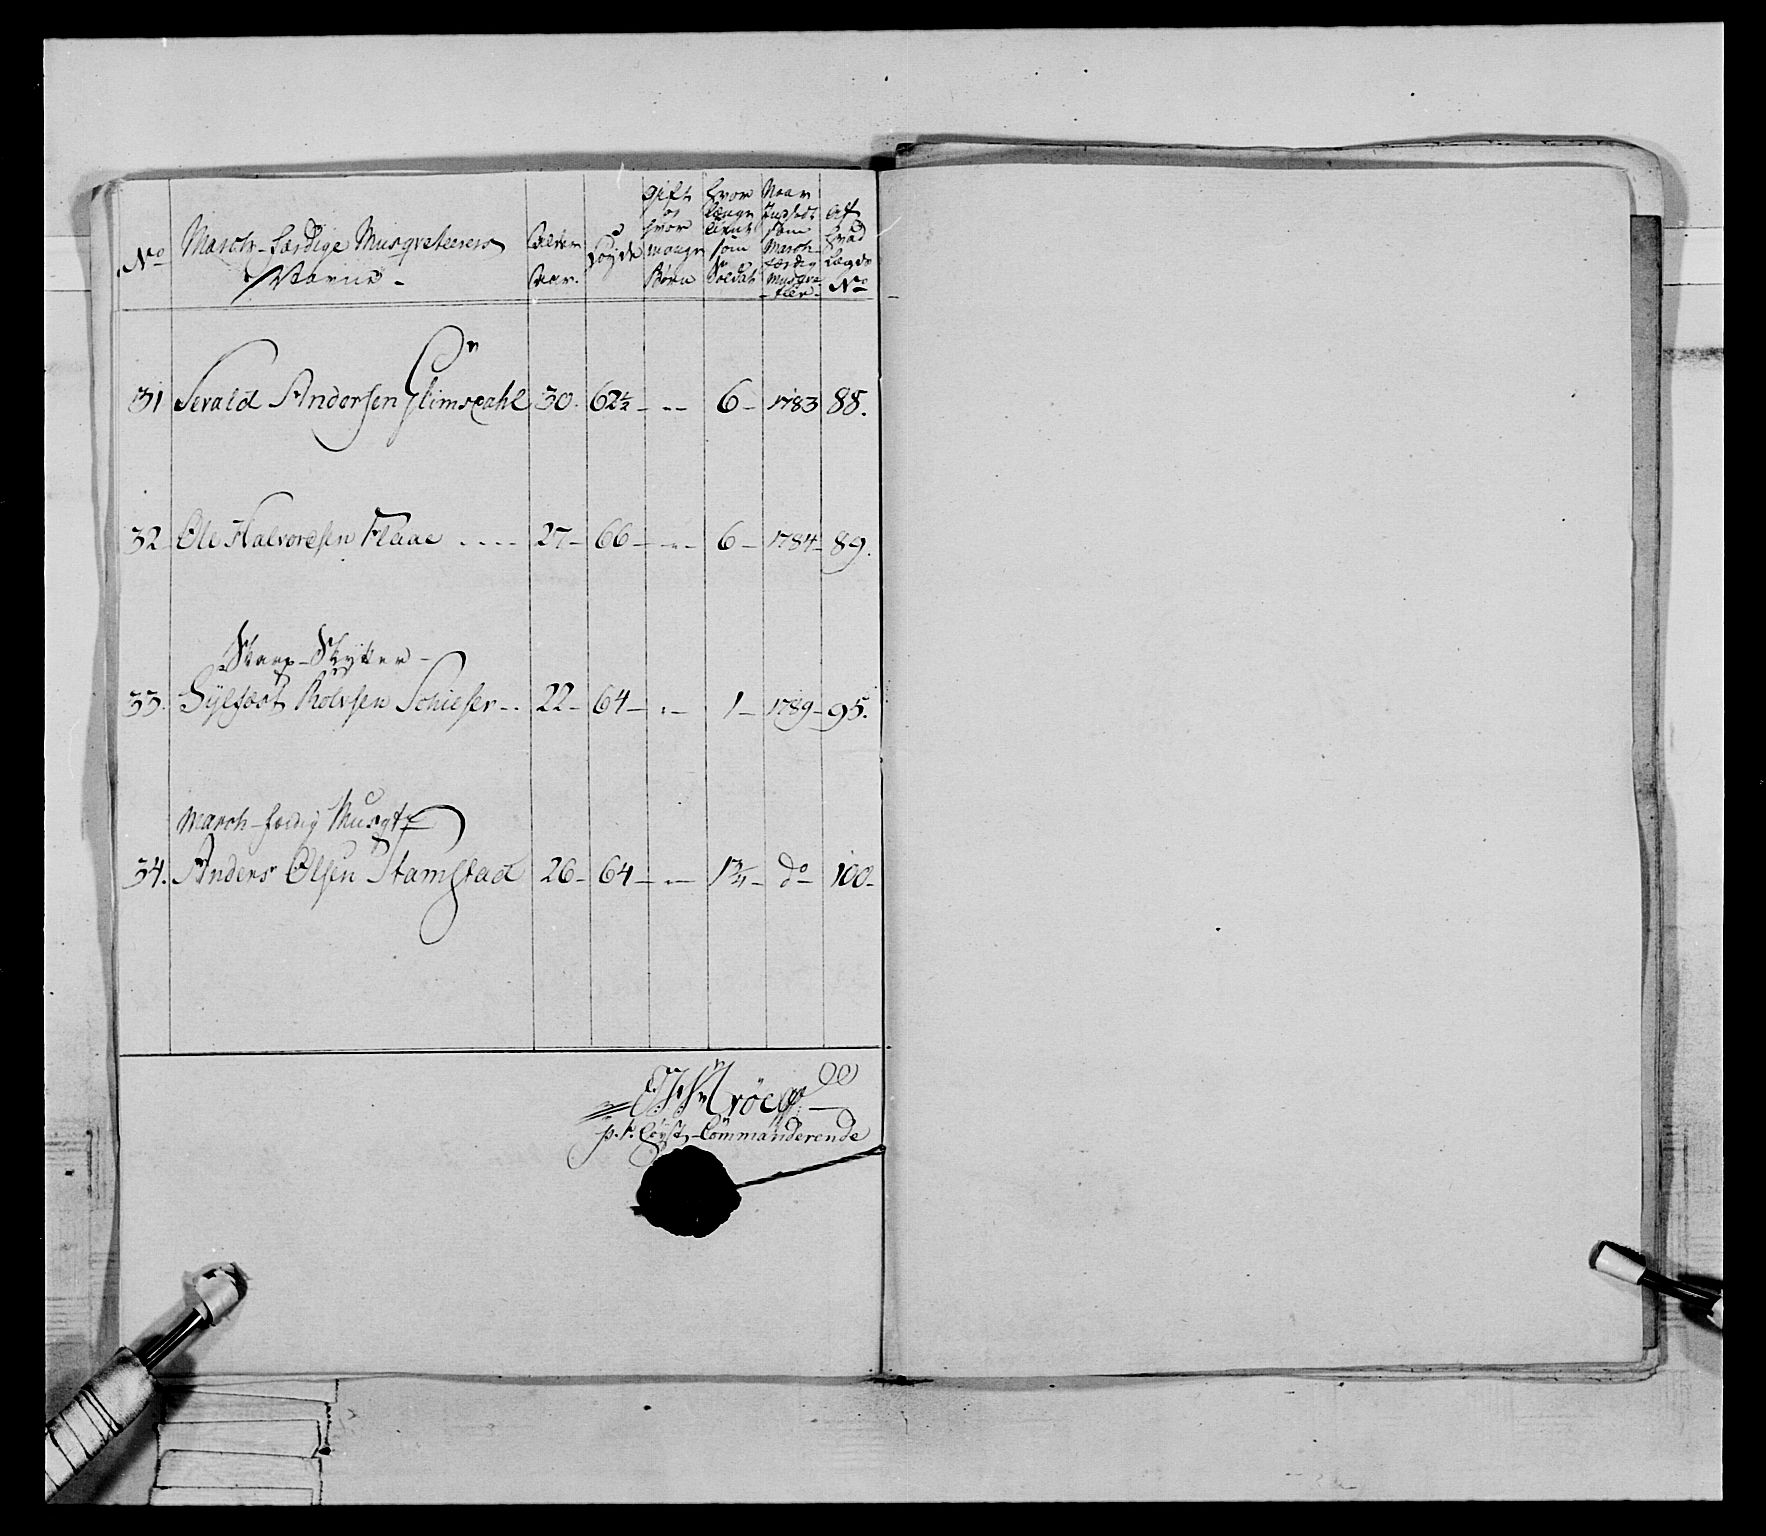 No
March-færdige Musqveteerers
Navne -
Alder
Aar.
Høyde
Gift
og
hvor
mange
Børn
Hvor
længe
tient
som
Soldat
Naar
Indsadt
som
March-
færdig
Musqve-
teer-
Af
hvad
Lægds
No
31 Sevald Andersen Glimsdahl 30. 62½ - -- 6- 1783 88.
32 Ole Halvorsen Flaae ---- 27- 66- -- 6- 1784- 89.
Skarp-Skytter-
33. Sylfæst Rolvsen -- 22- 64- -- 1- 1789- 95.
March-færdig Musqtr
34. Anders Olsen Stamstad 26- 64- -- do 100-
p.t. Commanderende